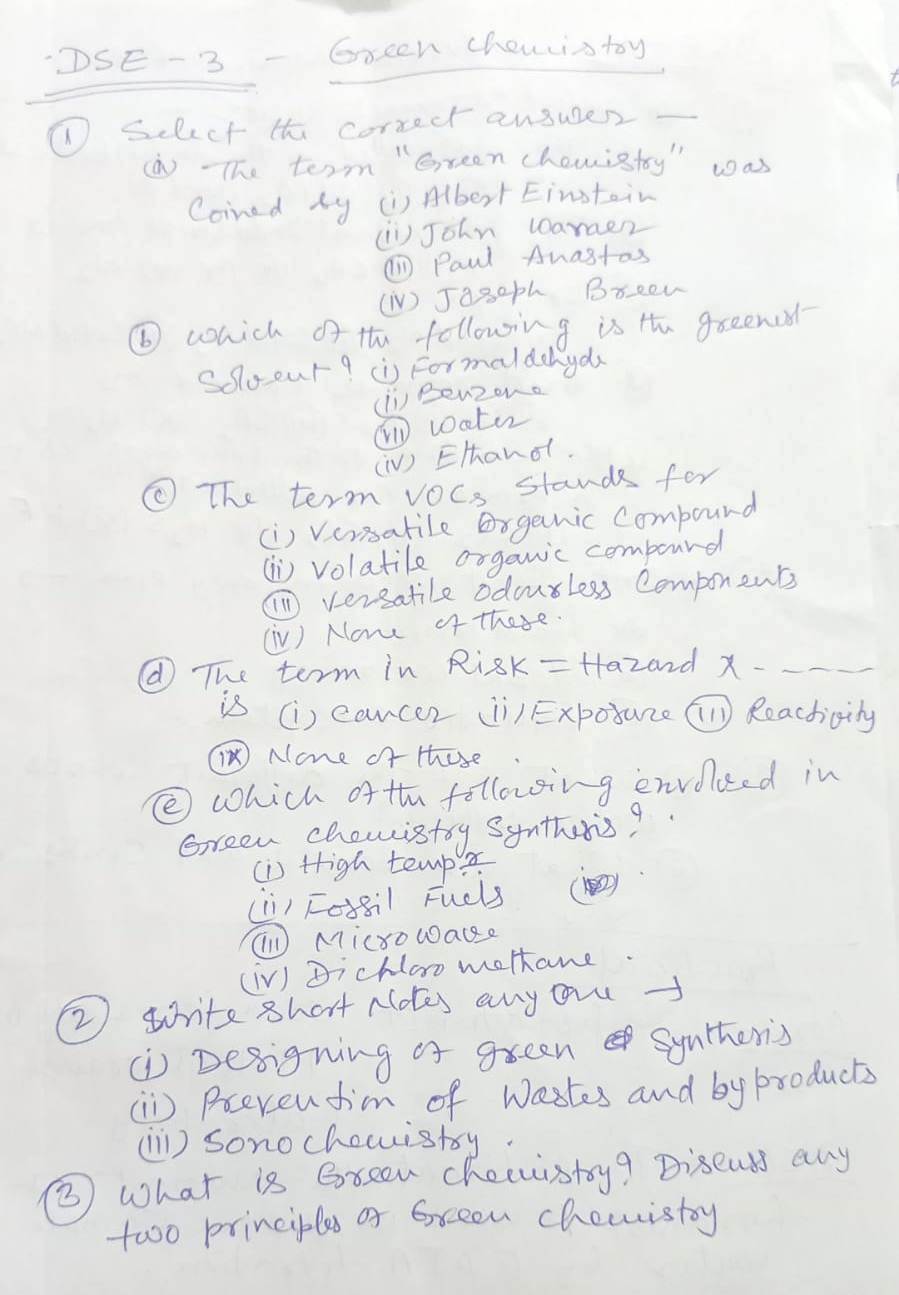 DSE - 3 - Green chemistry
① Select the correct answer —
(a) The term "Green chemistry" was
Coined by (i) Albert Einstein
(ii) John Warner
(iii) Paul Anastas
(iv) Joseph Breen
(b) which of the following is the greenest
Solvent? (i) Formaldehyde
(ii) Benzene
(iii) water
(iv) Ethanol.
(c) The term VOCs Stands for
(i) Versatile Organic Compound
(ii) Volatile organic compound
(iii) Versatile Odourless Components
(iv) None of these.
(d) The term in Risk = Hazard x - - - - -
is (i) cancer (ii) Exposure (iii) Reactivity
None of these
(e) which of the following envolved in
Green chemistry Synthesis?
(i) High temp
(ii) Fossil Fuels
(iii) Microwave
(iv) Dichloro methane.
② Write Short Notes any one →
(i) Designing of green Synthesis
(ii) Prevention of Wastes and byproducts
(iii) Sonochemistry.
③ What is Green chemistry? Discuss any
two principles of Green chemistry